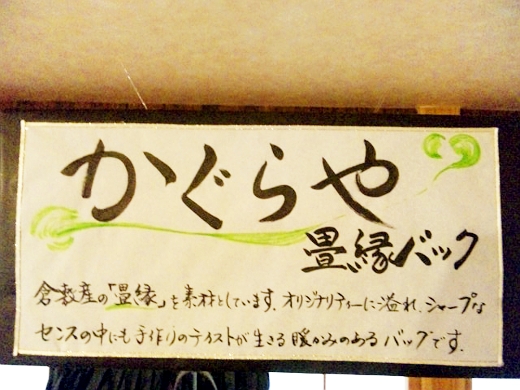 かぐらや
畳縁バック
倉敷産の「畳縁」を素材としています。オリジナリティーに溢れ、シャープな
センスの中にも手作りのテイストが生きる暖かみのあるバッグです。